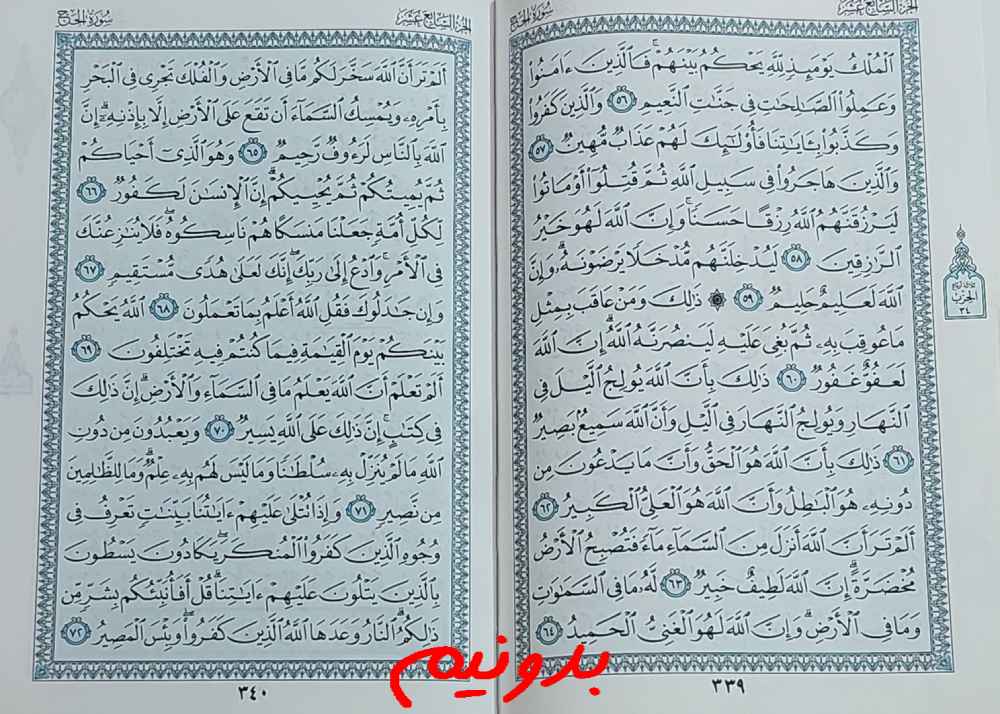 الجزء السابع عشر
سورة الحج
ٱلْمُلْكُ يَوْمَئِذٍ لِّلَّهِ يَحْكُمُ بَيْنَهُمْ ۚ فَٱلَّذِينَ ءَامَنُوا۟
وَعَمِلُوا۟ ٱلصَّـٰلِحَـٰتِ فِى جَنَّـٰتِ ٱلنَّعِيمِ ٥٦ وَٱلَّذِينَ كَفَرُوا۟
وَكَذَّبُوا۟ بِـَٔايَـٰتِنَا فَأُو۟لَـٰٓئِكَ لَهُمْ عَذَابٌ مُّهِينٌ ٥٧
وَٱلَّذِينَ هَاجَرُوا۟ فِى سَبِيلِ ٱللَّهِ ثُمَّ قُتِلُوٓا۟ أَوْ مَاتُوا۟
لَيَرْزُقَنَّهُمُ ٱللَّهُ رِزْقًا حَسَنًا ۚ وَإِنَّ ٱللَّهَ لَهُوَ خَيْرُ
ٱلرَّٰزِقِينَ ٥٨ لَيُدْخِلَنَّهُم مُّدْخَلًا يَرْضَوْنَهُۥ ۗ وَإِنَّ
ٱللَّهَ لَعَلِيمٌ حَلِيمٌ ٥٩ ۞ ذَٰلِكَ وَمَنْ عَاقَبَ بِمِثْلِ
مَا عُوقِبَ بِهِۦ ثُمَّ بُغِىَ عَلَيْهِ لَيَنصُرَنَّهُ ٱللَّهُ ۗ إِنَّ ٱللَّهَ
لَعَفُوٌّ غَفُورٌ ٦٠ ذَٰلِكَ بِأَنَّ ٱللَّهَ يُولِجُ ٱلَّيْلَ فِى
ٱلنَّهَارِ وَيُولِجُ ٱلنَّهَارَ فِى ٱلَّيْلِ وَأَنَّ ٱللَّهَ سَمِيعٌۢ بَصِيرٌ
٦١ ذَٰلِكَ بِأَنَّ ٱللَّهَ هُوَ ٱلْحَقُّ وَأَنَّ مَا يَدْعُونَ مِن
دُونِهِۦ هُوَ ٱلْبَـٰطِلُ وَأَنَّ ٱللَّهَ هُوَ ٱلْعَلِىُّ ٱلْكَبِيرُ ٦٢
أَلَمْ تَرَ أَنَّ ٱللَّهَ أَنزَلَ مِنَ ٱلسَّمَآءِ مَآءً فَتُصْبِحُ ٱلْأَرْضُ
مُخْضَرَّةً ۗ إِنَّ ٱللَّهَ لَطِيفٌ خَبِيرٌ ٦٣ لَّهُۥ مَا فِى ٱلسَّمَـٰوَٰتِ
وَمَا فِى ٱلْأَرْضِ ۗ وَإِنَّ ٱللَّهَ لَهُوَ ٱلْغَنِىُّ ٱلْحَمِيدُ ٦٤
٣٣٩
الحزب
٣٤
الجزء السابع عشر
سورة الحج
أَلَمْ تَرَ أَنَّ ٱللَّهَ سَخَّرَ لَكُم مَّا فِى ٱلْأَرْضِ وَٱلْفُلْكَ تَجْرِى فِى ٱلْبَحْرِ
بِأَمْرِهِۦ وَيُمْسِكُ ٱلسَّمَآءَ أَن تَقَعَ عَلَى ٱلْأَرْضِ إِلَّا بِإِذْنِهِۦٓ ۗ إِنَّ
ٱللَّهَ بِٱلنَّاسِ لَرَءُوفٌ رَّحِيمٌ ٦٥ وَهُوَ ٱلَّذِىٓ أَحْيَاكُمْ
ثُمَّ يُمِيتُكُمْ ثُمَّ يُحْيِيكُمْ ۗ إِنَّ ٱلْإِنسَـٰنَ لَكَفُورٌ ٦٦
لِّكُلِّ أُمَّةٍ جَعَلْنَا مَنسَكًا هُمْ نَاسِكُوهُ ۖ فَلَا يُنَـٰزِعُنَّكَ
فِى ٱلْأَمْرِ ۚ وَٱدْعُ إِلَىٰ رَبِّكَ ۖ إِنَّكَ لَعَلَىٰ هُدًى مُّسْتَقِيمٍ ٦٧
وَإِن جَـٰدَلُوكَ فَقُلِ ٱللَّهُ أَعْلَمُ بِمَا تَعْمَلُونَ ٦٨ ٱللَّهُ يَحْكُمُ
بَيْنَكُمْ يَوْمَ ٱلْقِيَـٰمَةِ فِيمَا كُنتُمْ فِيهِ تَخْتَلِفُونَ ٦٩
أَلَمْ تَعْلَمْ أَنَّ ٱللَّهَ يَعْلَمُ مَا فِى ٱلسَّمَآءِ وَٱلْأَرْضِ ۗ إِنَّ ذَٰلِكَ
فِى كِتَـٰبٍ ۚ إِنَّ ذَٰلِكَ عَلَى ٱللَّهِ يَسِيرٌ ٧٠ وَيَعْبُدُونَ مِن دُونِ
ٱللَّهِ مَا لَمْ يُنَزِّلْ بِهِۦ سُلْطَـٰنًا وَمَا لَيْسَ لَهُم بِهِۦ عِلْمٌ ۗ وَمَا لِلظَّـٰلِمِينَ
مِن نَّصِيرٍ ٧١ وَإِذَا تُتْلَىٰ عَلَيْهِمْ ءَايَـٰتُنَا بَيِّنَـٰتٍ تَعْرِفُ فِى
وُجُوهِ ٱلَّذِينَ كَفَرُوا۟ ٱلْمُنكَرَ ۖ يَكَادُونَ يَسْطُونَ
بِٱلَّذِينَ يَتْلُونَ عَلَيْهِمْ ءَايَـٰتِنَا ۗ قُلْ أَفَأُنَبِّئُكُم بِشَرٍّ مِّن
ذَٰلِكُمُ ۗ ٱلنَّارُ وَعَدَهَا ٱللَّهُ ٱلَّذِينَ كَفَرُوا۟ ۖ وَبِئْسَ ٱلْمَصِيرُ ٧٢
٣٤٠
بدونیم